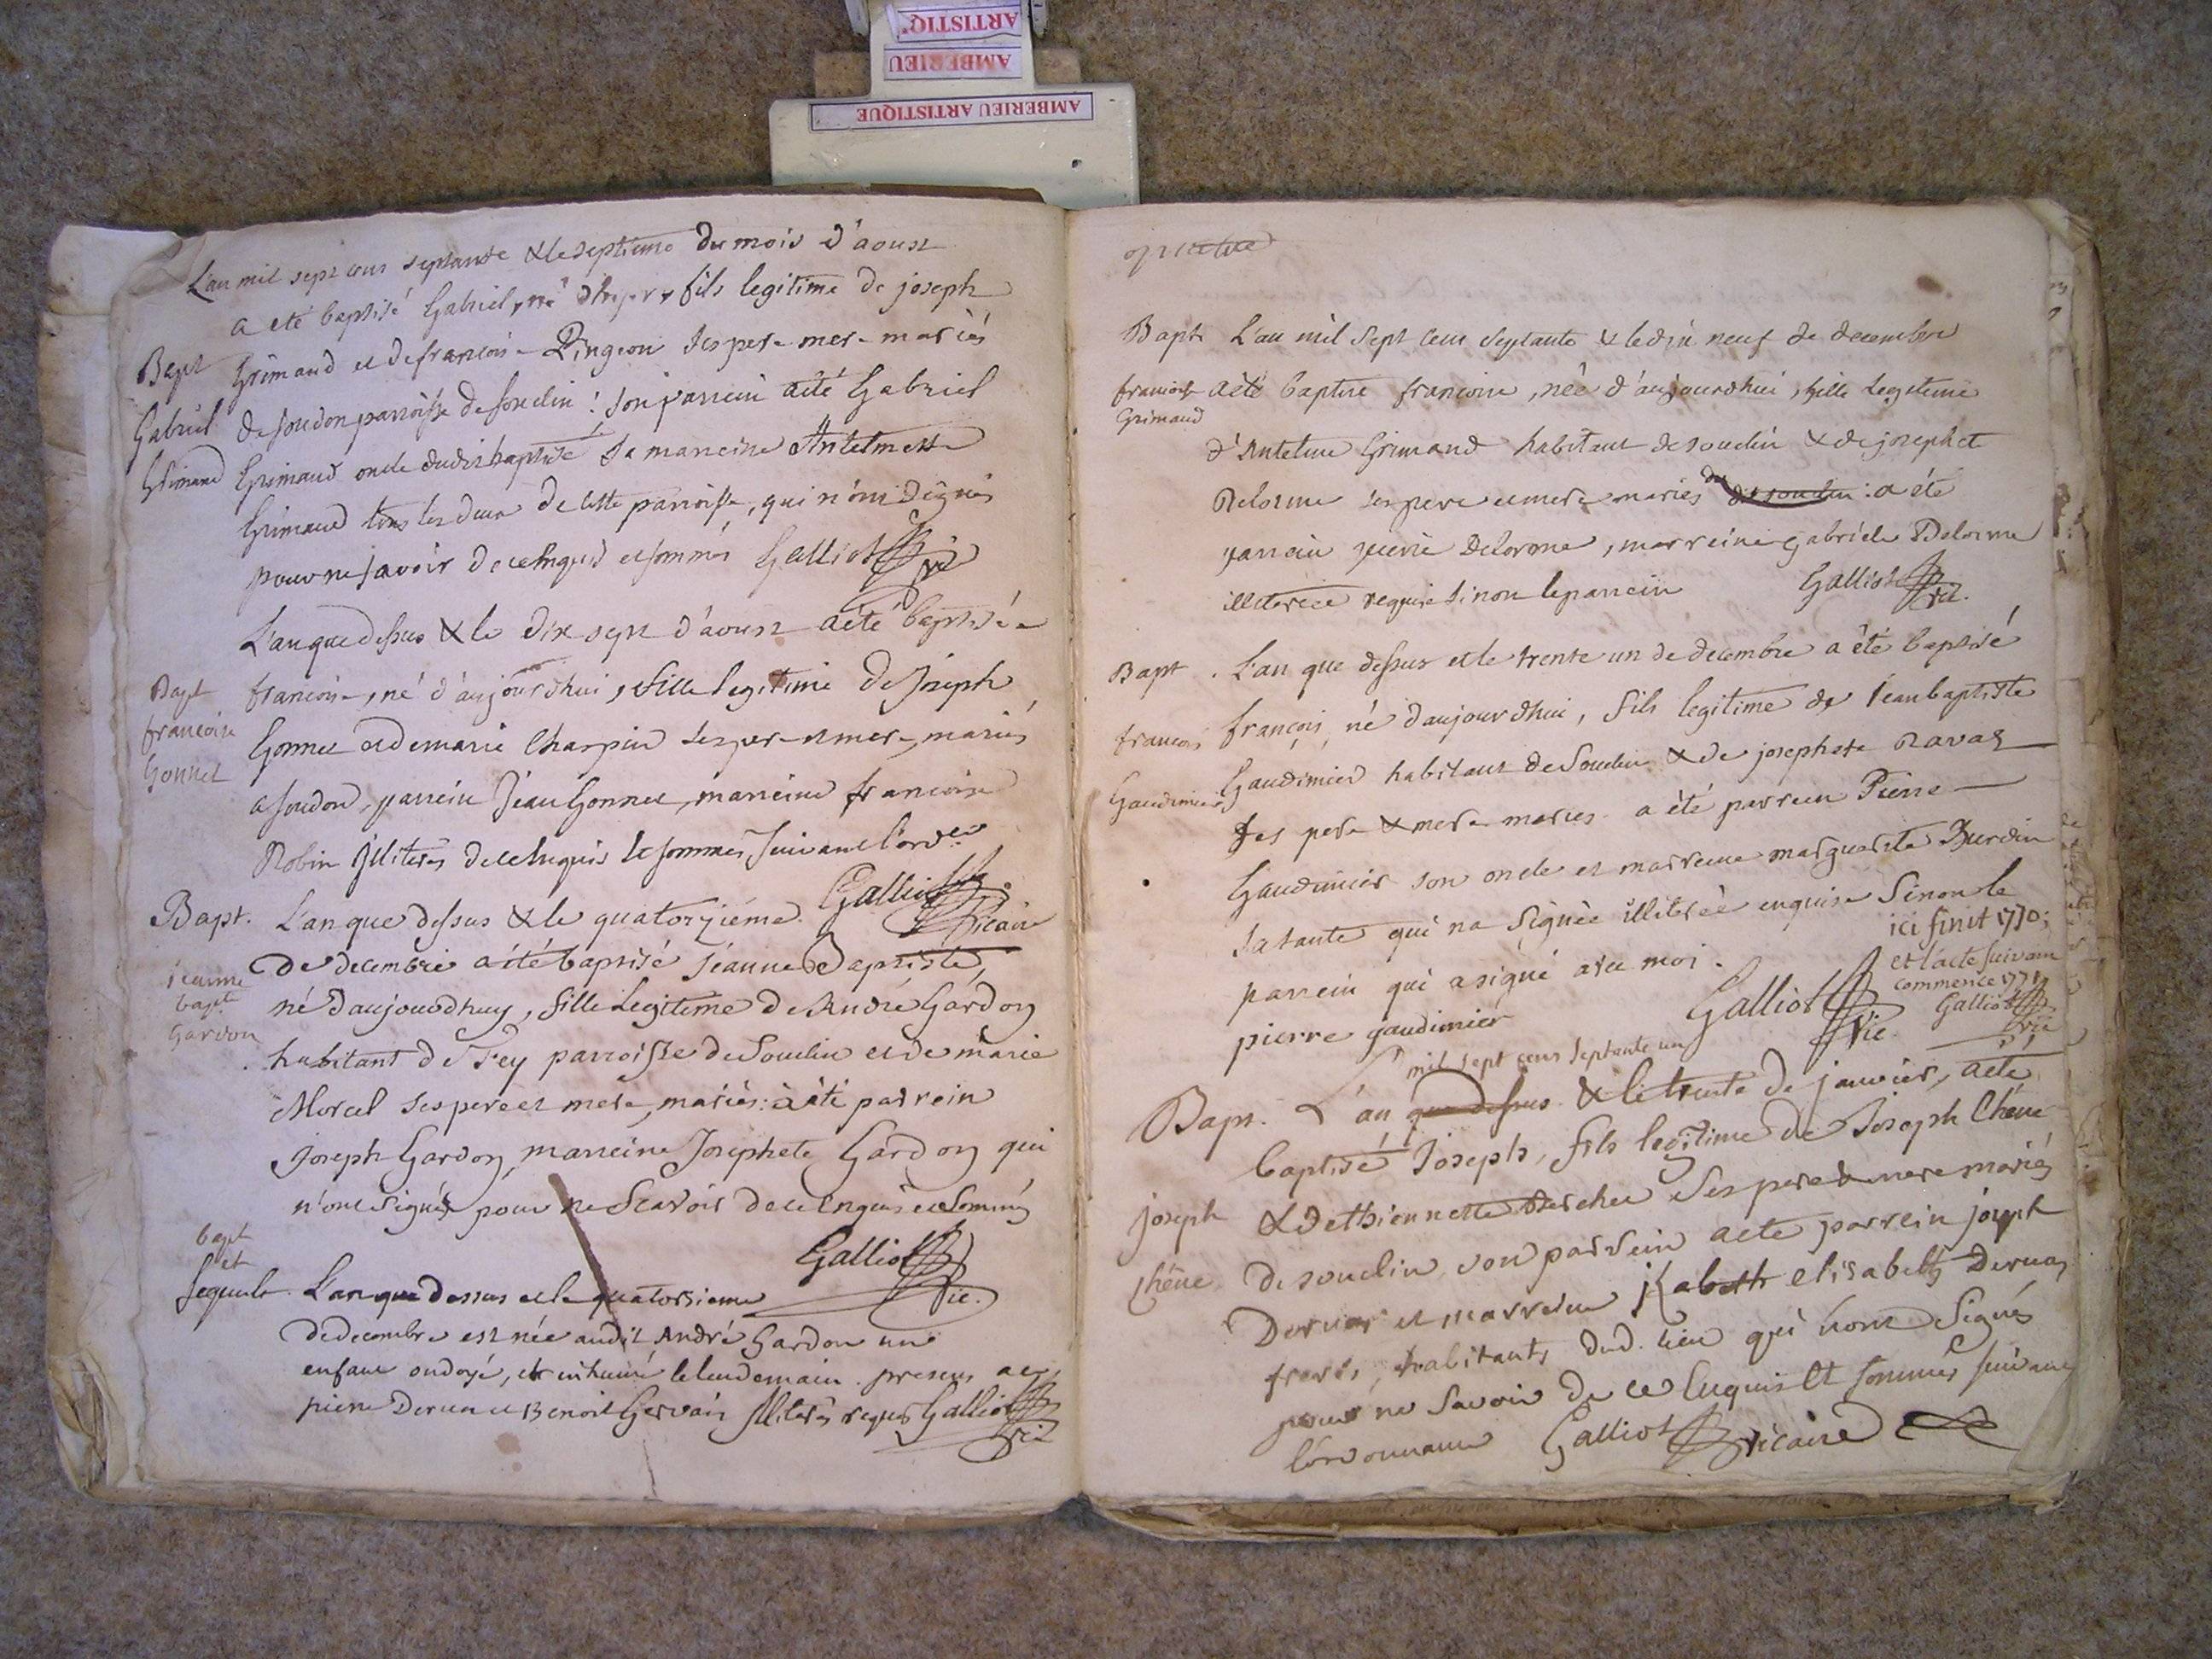 ARTISTIQ
AMBERIEU
AMBERIEU ARTISTIQUE
L'an mil sept cens septante & le septieme du mois d'aoust
a eté baptisé Gabriel, né d'hyer, fils legitime de joseph
Bapt Grimaud et de francoise Pingeon ses pere mere mariés
Gabriel de soudon parroisse de souclin : son parrein a été Gabriel
Grimaud Grimaud oncle dudit baptisé sa marreine Antelmette
Grimaud tous les deux de cette parroisse, qui n'ont signés
pour ne savoir de ce enquis et sommés Galliot vic
L'an que dessus & le dix sept d'aoust a été baptisée
Bapt francoise, né d'aujourdhui, fille legitime de Joseph
francoise Gonnet et de marie Charpin ses pere et mere, mariés
Gonnet a soudon, parrein Jean Gonnet, marreine francoise
Robin illiterés de ce enquis & sommés suivant l'ord.ce
Galliot vicaire
Bapt. L'an que dessus & le quatorzième
de decembre a été baptisé Jeanne Baptiste,
jeanne bapte né d'aujourdhuy, fille Legitime de André Gardon
Gardon habitant de Fey parroisse de Souclin et de marie
Morcel ses pere et mere, mariés : a été parrein
Joseph Gardon, marreine Josephete Gardon qui
n'ont signés pour ne scavoir de ce enquis et sommés
Galliot vic.
bapt
et
sepult. L'an que dessus et le quatorsieme
de decembre est née audit André Gardon un
enfant ondoyé, et inhumé le lendemain. presens
pierre Dervan et Benoit Gervais illiterés requis Galliot vic
Bapt L'an mil sept cens septante & le dix neuf de decembre
francoise a été baptise francoise, née d'aujourdhui, fille Legiteme
Grimaud
d'Antelme Grimaud habitant de souclin & de josephete
Delorme ses pere et mere mariés du de souclin : a été
parrein pierre Delorme, marreine gabriele Delorme
illiterée requise sinon le parrein Galliot vic.
Bapt. L'an que dessus et le trente un de decembre a été baptisé
francois françois, né daujourdhui, fils legitime de Jean baptiste
Gaudimier Gaudimier habitant de Souclin & de josephete Ravaz
ses pere & mere mariés. a été parrein Pierre
Gaudimier son oncle et marreine marguerite Burdin
sa tante qui na signée illiterée enquise Sinon le
parrein qui a signé avec moi.
pierre gaudimier Galliot Vic.
ici finit 1770;
et l'acte suivant
commence 1771
Galliot vic
mil sept cens septante un
Bapt. L'an que dessus & le trente de janvier, a été
baptisé Joseph, fils legitime de Joseph Chêne
joseph & de thiennette Ses pere & mere mariés
Chêne de souclin, son parrein a été parrein joseph
Dervan et marreine elisabeth Dervan
freres, habitants dud. lieu qui n'ont Signés
pour ne Savoir de ce Enquis Et sommés suivant
l'ordonnance Galliot vicaire